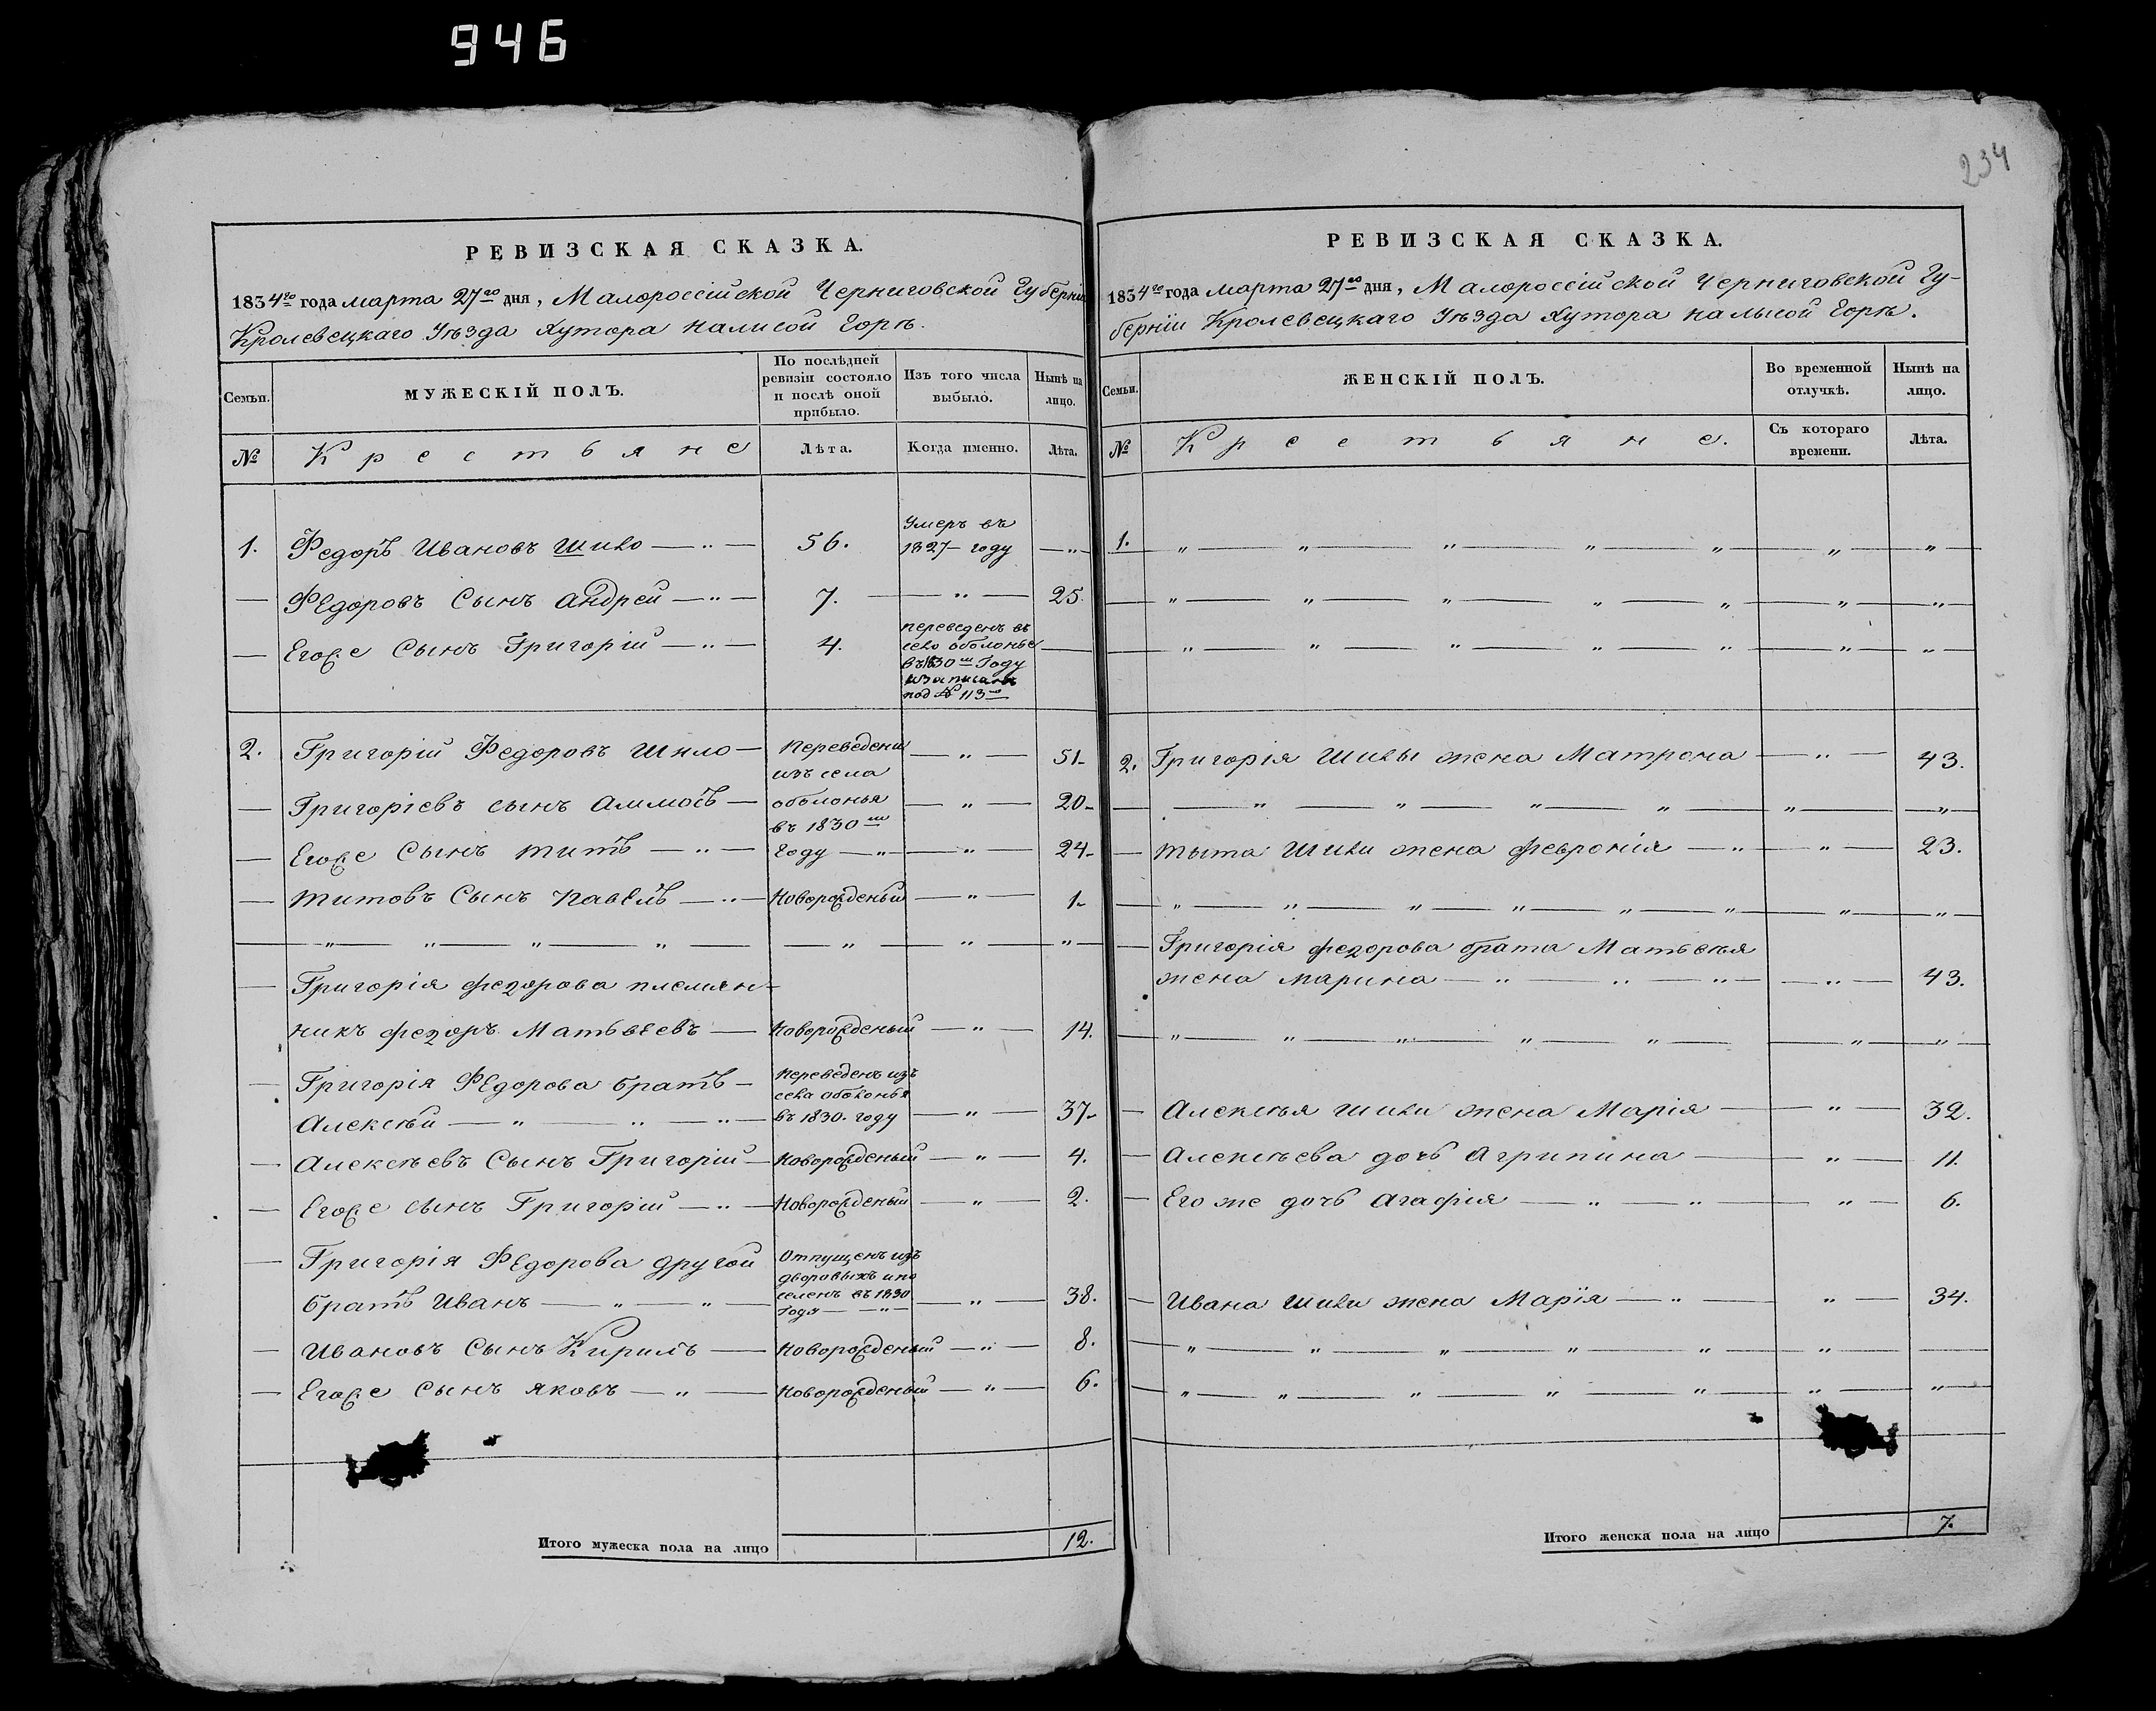 946
234
РЕВИЗСКАЯ СКАЗКА.
1834го года марта 27го дня, Малороссійской Черниговской Губерніи
Кролевецкаго Уѣзда Хутора налисой Горѣ.
Семьи.
МУЖЕСКІЙ ПОЛЪ.
По послѣдней ревизіи состояло и послѣ оной прибыло.
Изъ того числа выбыло.
Нынѣ на лицо.
№
Крестьяне
Лѣта.
Когда именно.
Лѣта.
1. Федоръ Ивановъ Шило — „ — 56. Умеръ въ 1827 году — „ —
— Федоровъ Сынъ Андрей — „ — 7. — „ — 25.
— Егоже Сынъ Григорій — „ — 4. переведенъ въ село оболонье въ 1830м Году изаписанъ под № 113м —
2. Григорій Федоровъ Шило — Переведени — „ — 51.
изъ села
— Григоріевъ сынъ — оболонья — „ — 20.
въ 1830м
— Егоже Сынъ титъ — „ — году — „ — „ — 24.
— титовъ Сынъ павелъ — „ — Новорожденый — „ — 1.
— „ — „ — „ — „ — „ — „ — „ —
— Григорія федорова племян-
никъ федоръ Матьвеевъ — Новорожденый — „ — 14.
— Григорія Федорова братъ — Переведенъ изъ
села оболонья
Алексѣй — „ — „ — „ — въ 1830. году — „ — 37.
— Алексѣевъ Сынъ Григорій — Новорожденый — „ — 4.
— Егоже сынъ Григорій — „ — Новорожденый — „ — 2.
— Григорія Федорова другой Отпущенъ изъ
дворовыхъ ипо
братъ Иванъ — „ — „ — селенъ въ 1830 — „ — 38.
Годя — „ —
— Ивановъ Сынъ Кирилъ — Новорожденый — „ — 8.
— Егоже Сынъ яковъ — „ — Новорожденый — „ — 6.
Итого мужеска пола на лицо 12.
РЕВИЗСКАЯ СКАЗКА.
1834го года марта 27го дня, Малороссійской Черниговской Гу-
берніи Кролевецкаго Уѣзда Хутора налысой Горѣ.
Семьи.
ЖЕНСКІЙ ПОЛЪ.
Во временной отлучкѣ.
Нынѣ на лицо.
№
Крестьяне.
Съ котораго времени.
Лѣта.
1. „ — „ — „ — „ — „ — „ — „ —
— „ — „ — „ — „ — „ — „ — „ —
„ — „ — „ — „ — „ — „ — „ —
2. Григорія Шилы жена Матрона — „ — 43.
— „ — „ — „ — „ — „ — „
— тыта Шили жена феврония — „ — „ — 23.
— „ — „ — „ — „ — „ — „ — „ — „ —
— Григорія федорова брата Матьвѣя
жена марина — „ — „ — „ — „ — 43.
— „ — „ — „ — „ — „ — „ — „ —
— Алексѣя шили жена Марія — „ — 32.
— Алексѣева дочь Агрипина — „ — 11.
— Его же дочь Агафія — „ — „ — „ — 6.
— Ивана Шили жена Марія — „ — „ — 34.
— „ — „ — „ — „ — „ — „ —
— „ — „ — „ — „ — „ — „ — „ —
Итого женска пола на лицо 7.